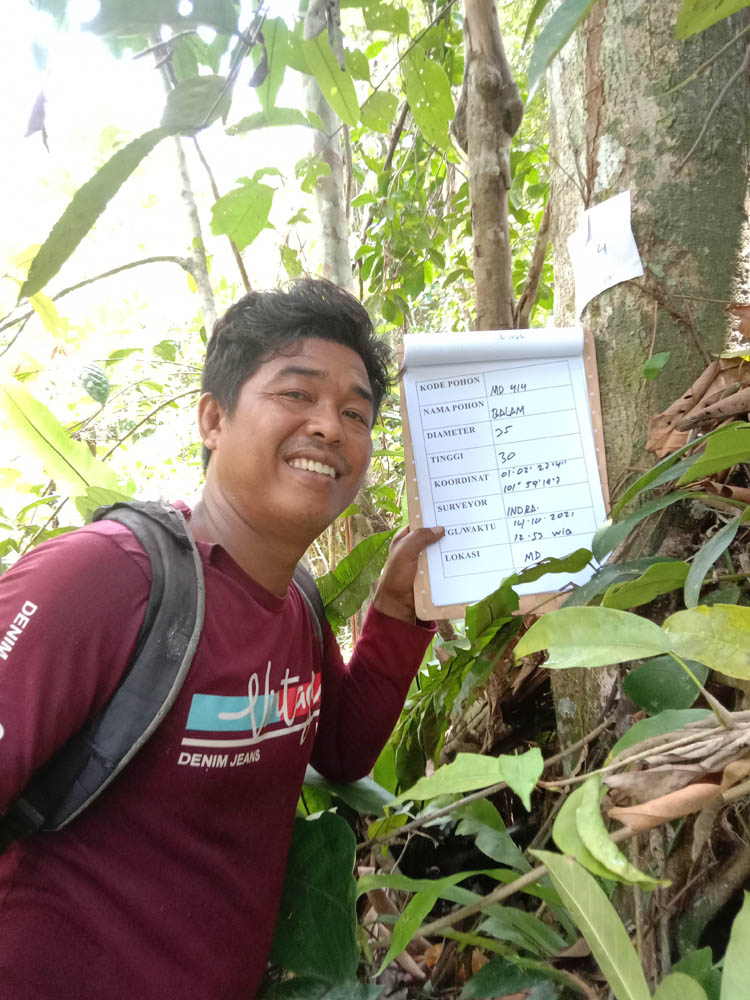 4
KODE POHON MD 414
NAMA POHON BALAM
DIAMETER 75
TINGGI 30
KOORDINAT 01:02: 22'4"
101° 59'19"7
SURVEYOR INDRA.
GL/WAKTU 14.10.2021
12.53 WIB
LOKASI MD
DENIM
Vintage
DENIM JEANS